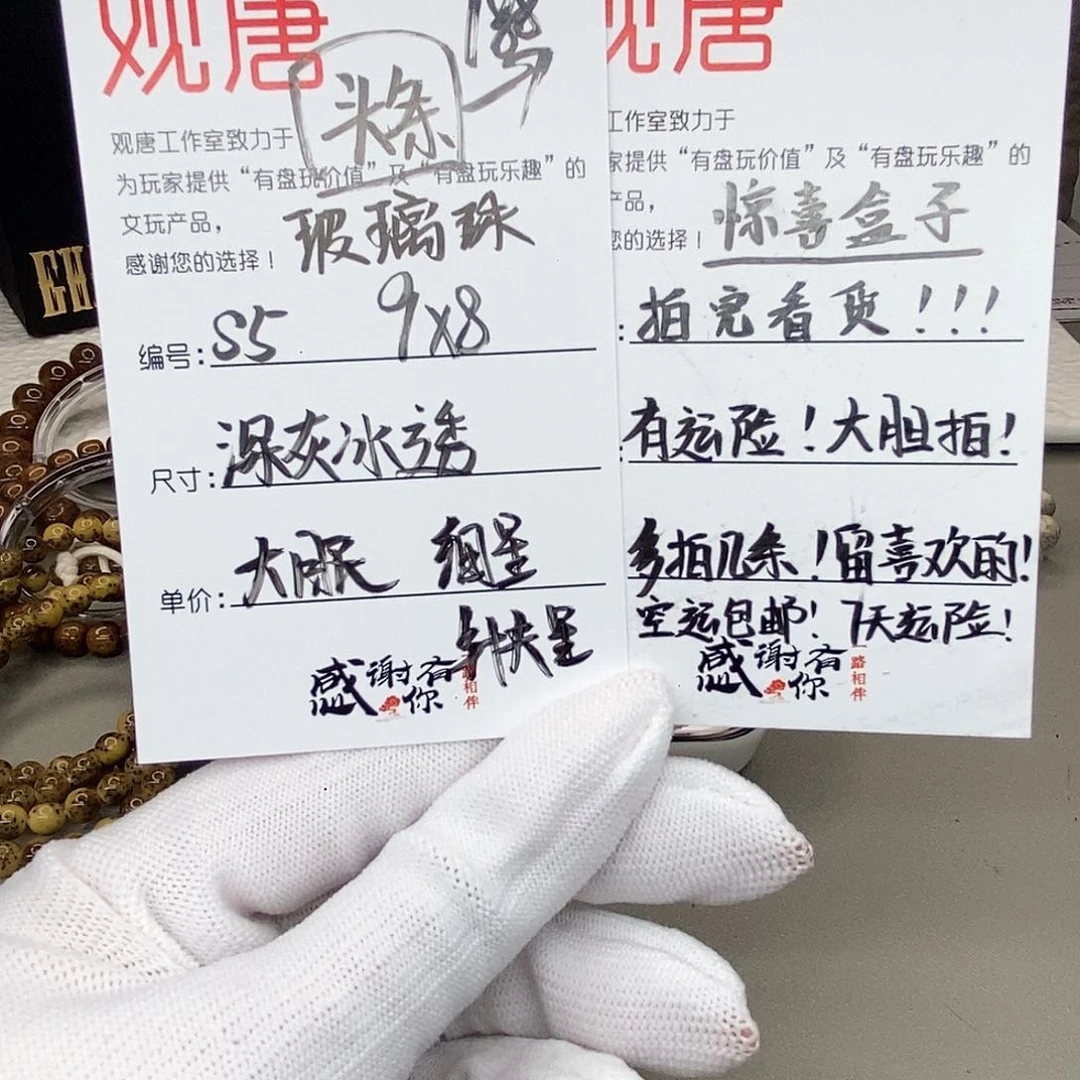 观唐
头条
观唐工作室致力于
为玩家提供“有盘玩价值”及“有盘玩乐趣”的
文玩产品，
玻璃珠
感谢您的选择！
编号：S5 9x8
尺寸：深灰冰透
单价：大眼 细星
针夹星
感谢有你
路相伴
观唐
工作室致力于
家提供“有盘玩价值”及“有盘玩乐趣”的
产品，
您的选择！
惊喜盒子
拍完看货！！！
有运险！大胆拍！
多拍几条！留喜欢的！
空运包邮！7天运险！
感谢有你
一路相伴